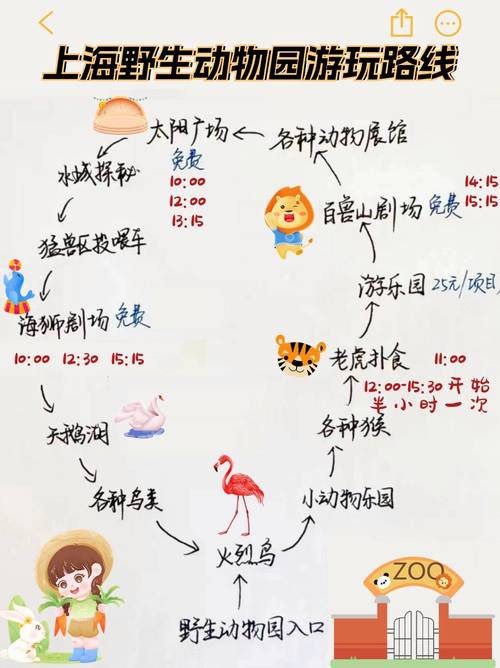 上海野生动物园游玩路线
太阳广场
各种动物展馆
免费
10:00
12:00
13:15
水域探秘
猛兽区投喂车
海狮剧场 免费
10:00 12:30 15:15
天鹅湖
各种鸟类
火烈鸟
野生动物园入口
14:15
百兽山剧场 免费 15:15
游乐园 25元/项目
老虎扑食 11:00
12:00-15:30开始
半小时一次
各种猴
小动物乐园
ZOO